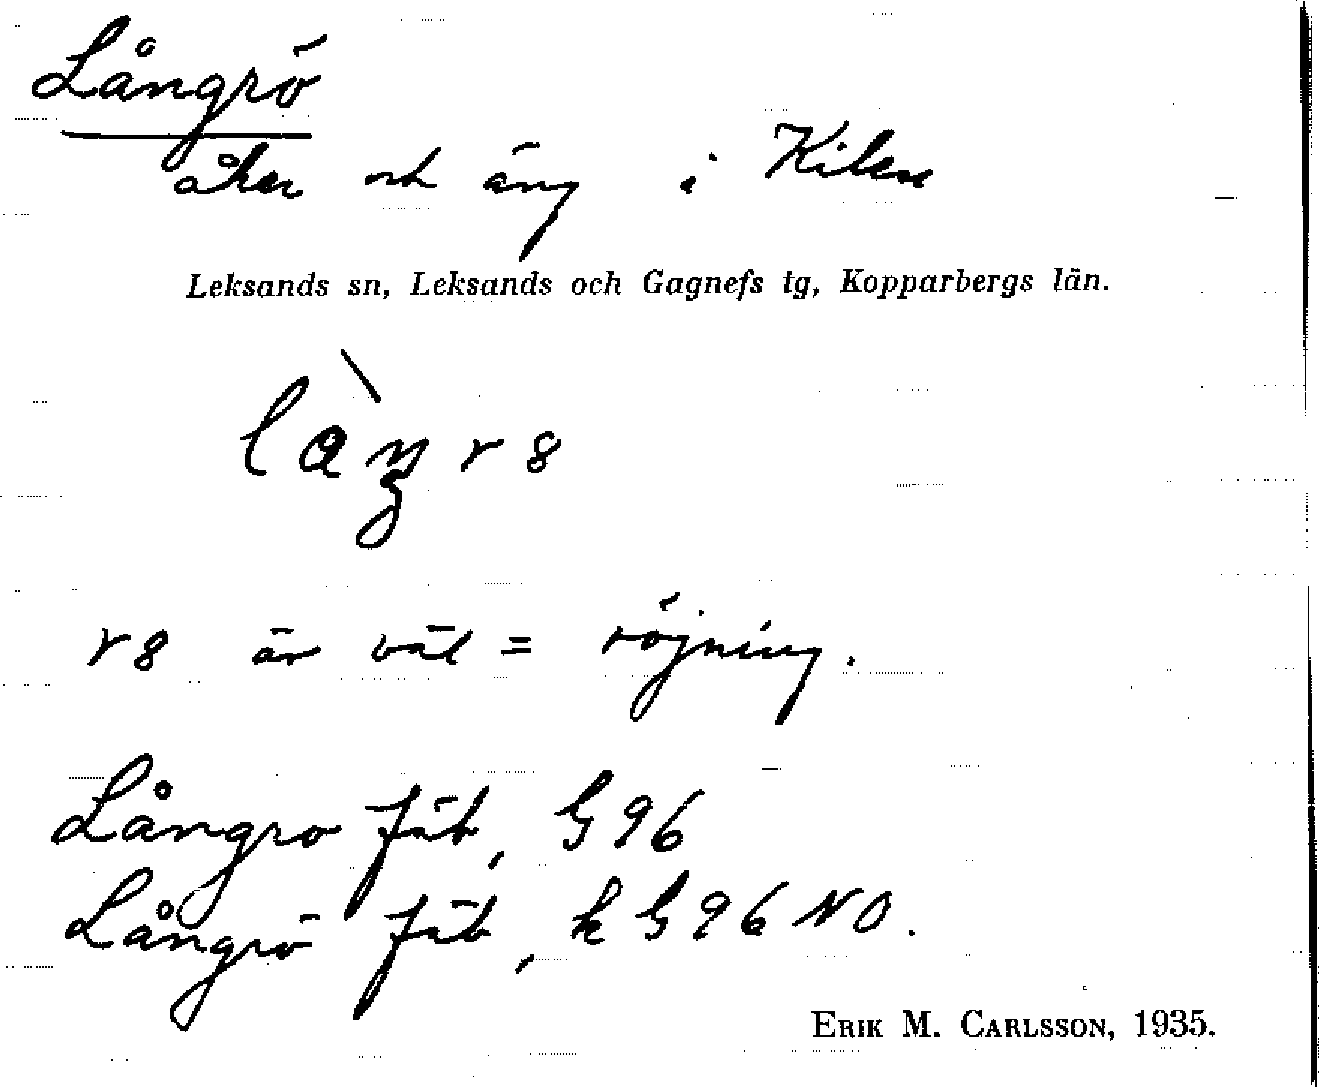 Långrö
åker och äng i Kilen
Leksands sn, Leksands och Gagnefs tg, Kopparbergs län.
r8 är väl = röjning.
Långro fäb, G 96
Långrö fäb, k G 96 NO.
ERIK M. CARLSSON, 1935.